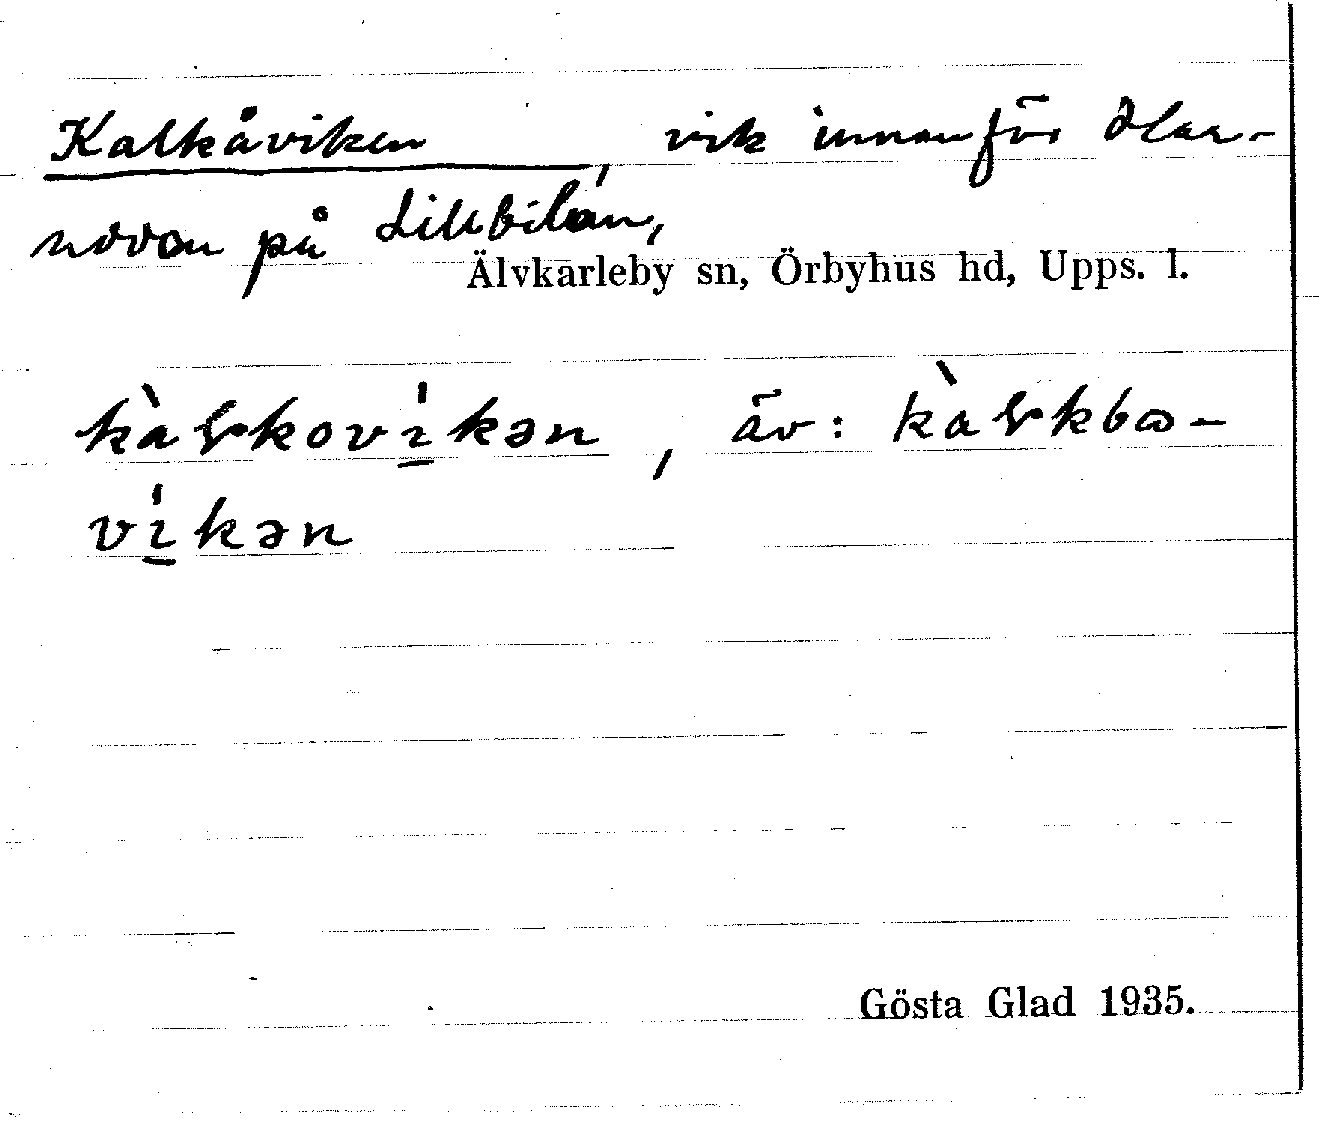 Kalkåviken, vik innanför Olar-
novan på Lillbilan,
Älvkarleby sn, Örbyhus hd, Upps. l.
kàlkovi̱kən, äv: kàlkbω-
vi̱kən
Gösta Glad 1935.